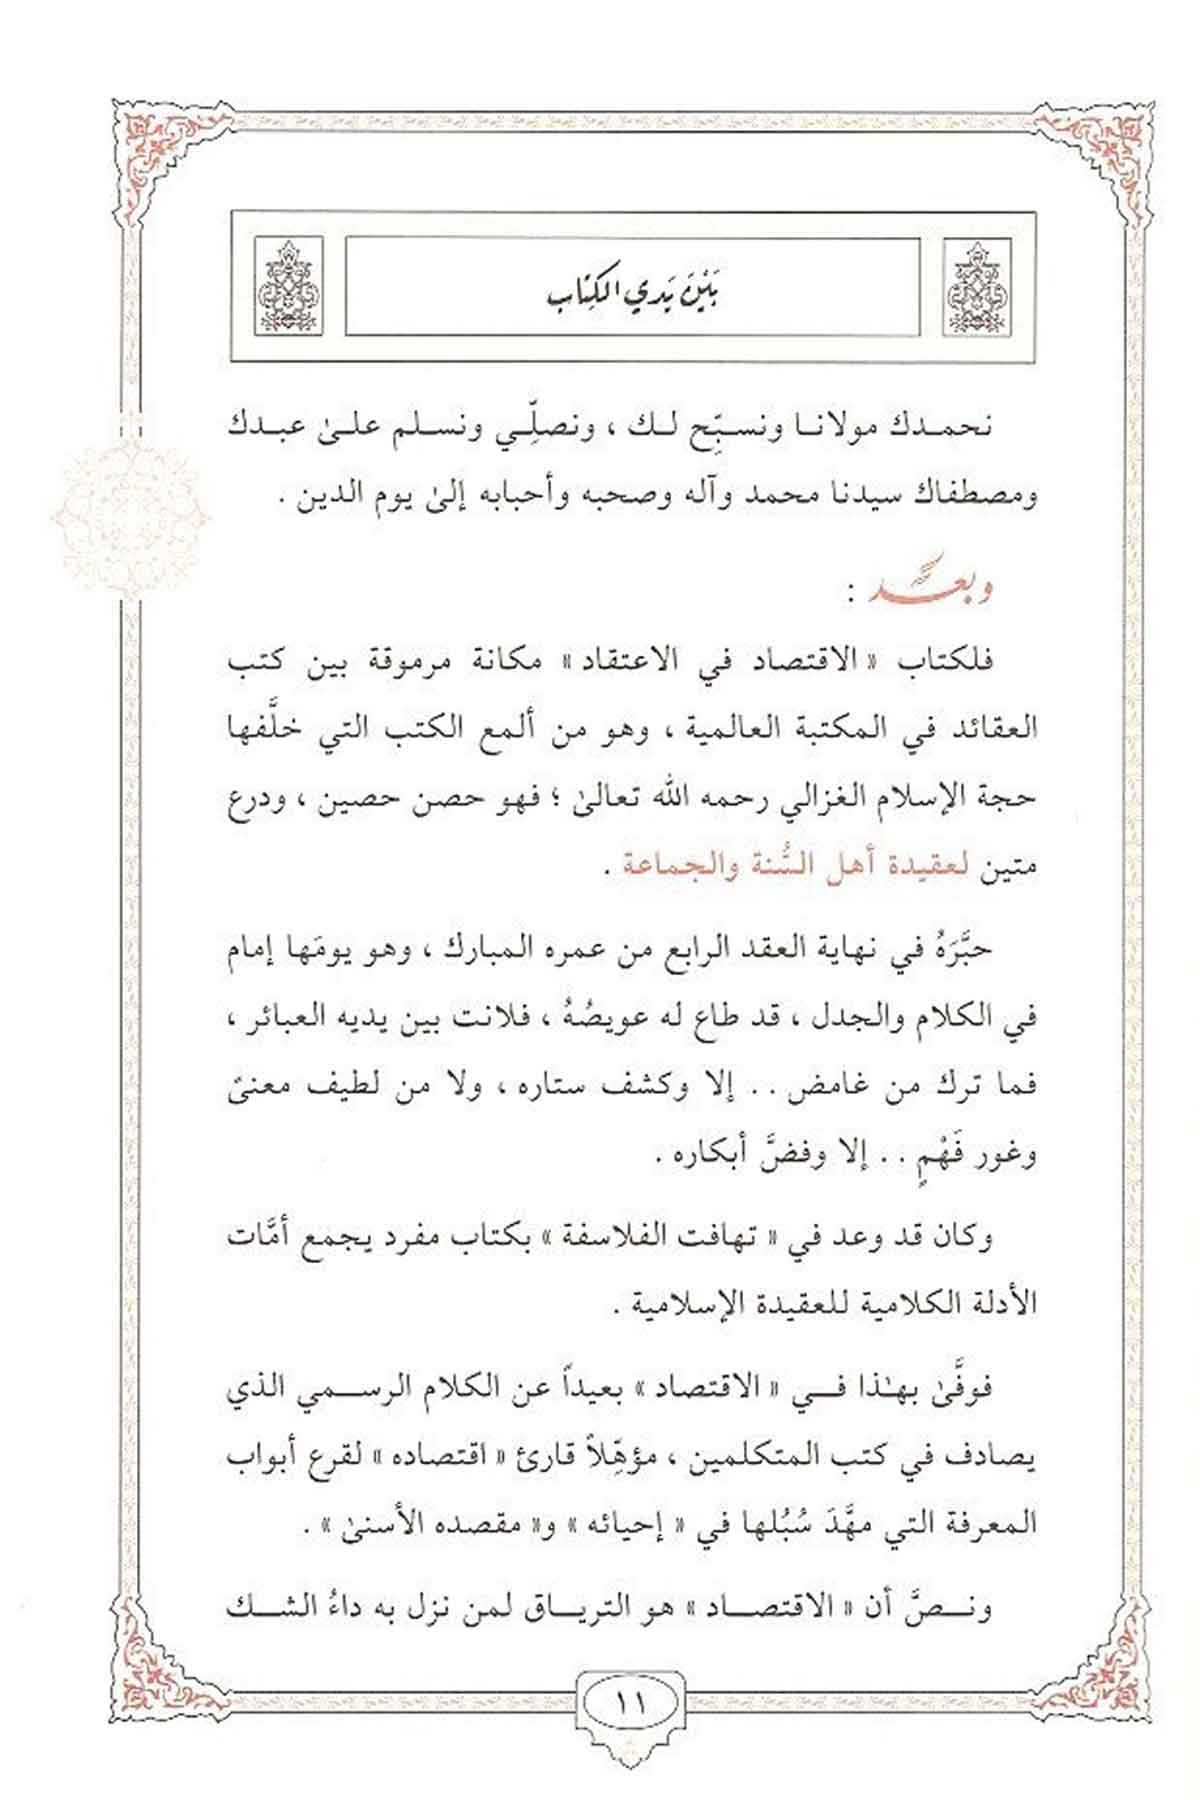 بَيْنَ يَدَي الكِتَاب
نحمدك مولانا ونسبِّح لك ، ونصلِّي ونسلم علىٰ عبدك
ومصطفاك سيدنا محمد وآله وصحبه وأحبابه إلىٰ يوم الدين .
وبعد :
فلكتاب « الاقتصاد في الاعتقاد » مكانة مرموقة بين كتب
العقائد في المكتبة العالمية ، وهو من ألمع الكتب التي خلَّفها
حجة الإسلام الغزالي رحمه الله تعالىٰ ؛ فهو حصن حصين ، ودرع
متين لعقيدة أهل السُّنة والجماعة .
حبَّرَهُ في نهاية العقد الرابع من عمره المبارك ، وهو يومَها إمام
في الكلام والجدل ، قد طاع له عويصُهُ ، فلانت بين يديه العبائر ،
فما ترك من غامض . . إلا وكشف ستاره ، ولا من لطيف معنىً
وغور فَهْمٍ . . إلا وفضَّ أبكاره .
وكان قد وعد في « تهافت الفلاسفة » بكتاب مفرد يجمع أمَّات
الأدلة الكلامية للعقيدة الإسلامية .
فوفَّىٰ بهٰذا في « الاقتصاد » بعيداً عن الكلام الرسمي الذي
يصادف في كتب المتكلمين ، مؤهِّلاً قارئ « اقتصاده » لقرع أبواب
المعرفة التي مهَّدَ سُبُلها في « إحيائه » و« مقصده الأسنىٰ » .
ونصَّ أن « الاقتصاد » هو الترياق لمن نزل به داءُ الشك
١١